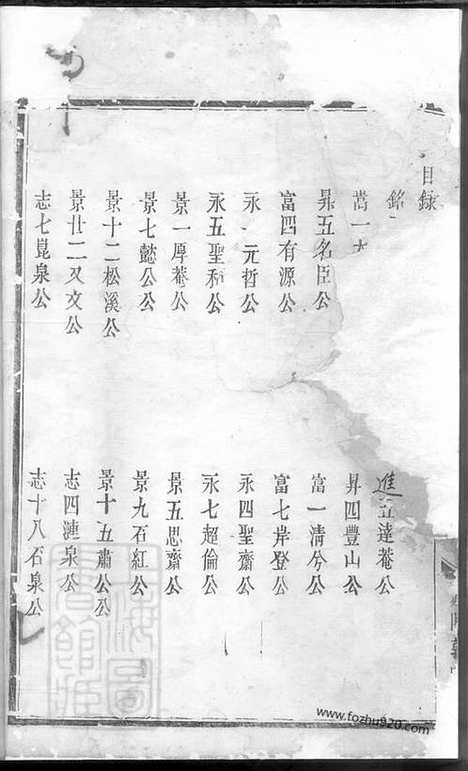 目録
銘
進五達菴公
嵩一
昇四豐山公
昇五名臣公
富一清兮公
富四有源公
富七岸登公
永一元哲公
永四聖齋公
永五聖和公
永七超倫公
景一厚菴公
景五思齋公
景七懿公公
景九石紅公
景十二松溪公
景十五肅公公
景廿二又文公
志四漣泉公
志七崑泉公
志十八石泉公
www.fozhu920.com